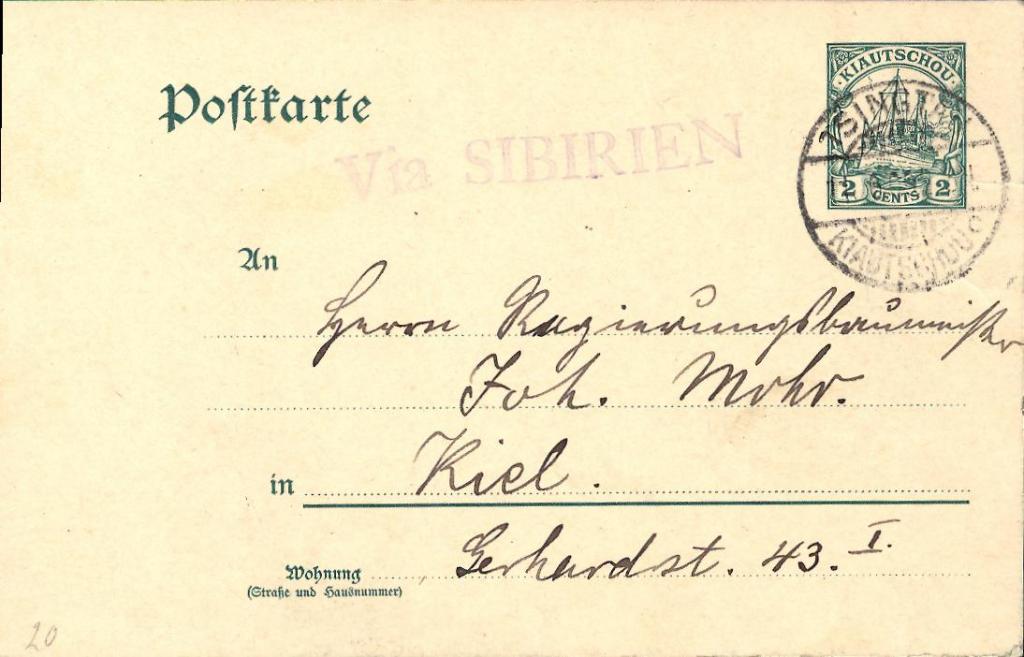 Postkarte
KIAUTSCHOU
2 CENTS 2
Via SIBIRIEN
KIAUTSCHOU
An
Herrn Regierungsbaumeister
Joh. Mohr.
in Kiel.
Gerhardst. 43. I.
Wohnung
(Straße und Hausnummer)
20